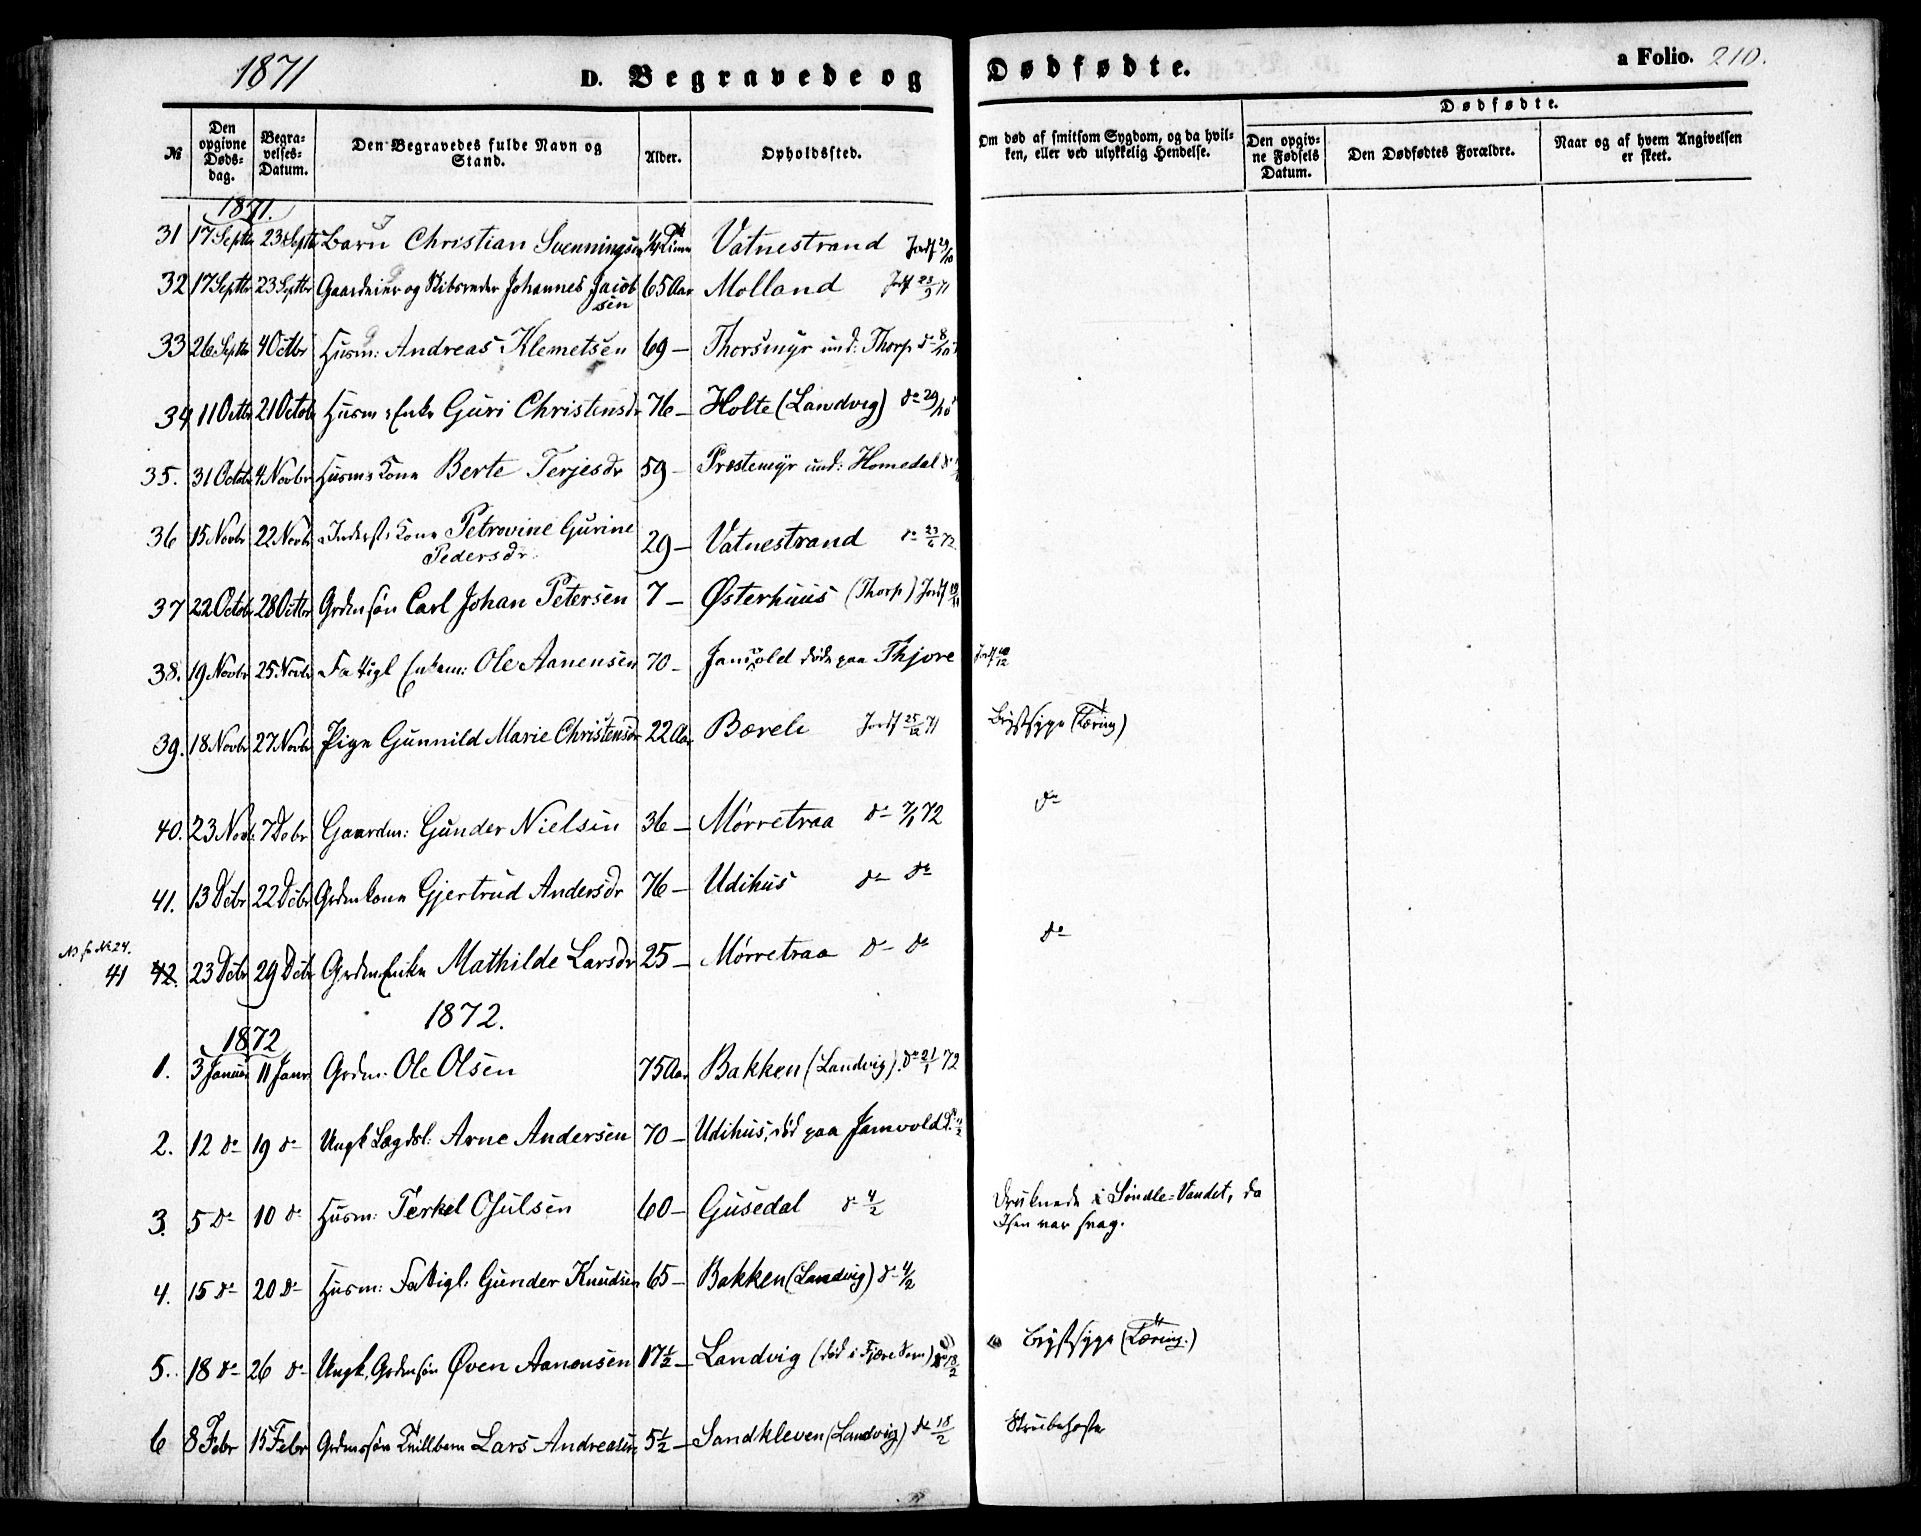 1871
D. Begravede og Dødfødte.
a Folio. 210.
№
Den opgivne Døds-dag.
Begra-velses-Datum.
Den Begravedes fulde Navn og Stand.
Alder.
Opholdssted.
Om død af smitsom Sygdom, og da hvil-ken, eller ved ulykkelig Hendelse.
Dødfødte.
Den opgiv-ne Fødsels Datum.
Den Dødfødtes Forældre.
Naar og af hvem Angivelsen er skeet.
1871.
31 17 Septbr 23 Septbr Barn Christian Svenningsen 1/4 Time Vatnestrand Jordf 29/10
32 17 Septbr 23 Septbr Gaardeier og Skibsreder Johannes Jacob
sen 65 Aar Molland Jordf 23/9 71
33 26 Septbr 4 Octbr Husm: Andreas Klemetsen 69 — Thorsmyr und: Thorp do 8/10
34 11 Octbr 21 Octob Husm: Enke Guri Christensdr 76 — Holte (Landvig) do 29/10
35. 31 Octob 4 Novbr Husm: Kone Berte Terjesdr 59 — Prestemyr und: Homedal do
36 15 Novbr 22 Novbr Inderst: Kone Petrovine Gurine
Pedersdr 29 — Vatnestrand do 23/6 72
37 22 Octob 28 Octbr Grdmsøn Carl Johan Petersen 7 — Østerhuus (Thorp) Jordf
38. 19 Novbr 25 Novbr Fattigl Enkem: Ole Aanensen 70 — Jamvold døde paa Thjore Jordf 10/12
39. 18 Novbr 27 Novbr Pige Gunnild Marie Christensdr 22 Aar Bærele Jordf 25/12 71 Brystsyge (Tæring)
40. 23 Novb: 7 Debr Gaardm: Gunder Nielsen 36 — Mørretraa do 7/1 72 do
41. 13 Debr 22 Debr Grdmkone Gjertrud Andersdr 76 — Udihus do do
NB fr No 24.
41 42. 23 Debr 29 Debr Grdm Enke Mathilde Larsdr 25 — Mørretraa do do do
1872.
1872
1. 3 Januar 11 Janr Grdm. Ole Olsen 75 Aar Bakken (Landvig). do 21/1 72
2. 12 do 19 do Ungk Lægdsl: Arne Andersen 70 — Udihus, død paa Jamvold do 11/2
3. 5 do 10 do Husm: Terkel Osulsen 60 — Gusedal do 4/2 Druknede i Søndle-Vandet, da
Isen var svag.
4. 15 do 20 do Husm: Fattigl: Gunder Knudsen 65 — Bakken (Landvig) do 4/2
5. 18 do 26 do Ungk, Grdmsøn Øven Aanonsen 17 1/2 — Landvig (død i Fjære Sogn) do 18/2 Brystsyge (Tæring.)
6 8 Febr 15 Febr Grdmssøn Tvillbarn Lars Andreasen 5 1/2 — Sandkleven (Landvig) do 18/2 Strubehoste